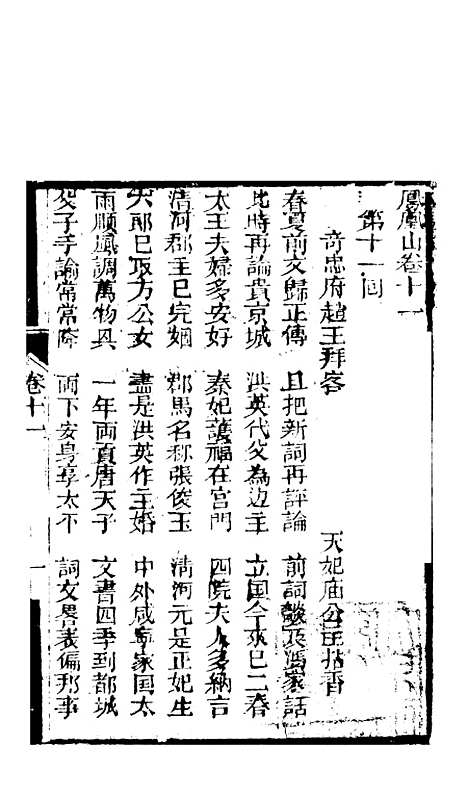 鳳凰山卷十一
第十一囬
奇忠府趙王拜客 天妃庙公主拈香
春夏前文歸正傳 且把新詞再評論 前詞談及馮家話
此時再論貴京城 洪英代父為边主 立国今來已二春
太王夫婦多安好 秦妃護福在宮門 四院夫人多納言
清河郡主已完姻 郡馬名称張俊玉 清河元是正妃生
六郎已取方公女 盡是洪英作主婚 中外咸寧家国太
雨順風調萬物具 一年両貢唐天子 文書四季到都城
父子手諭常常降 両下安身享太平 詞文畧表偏邦事
卷十一 一